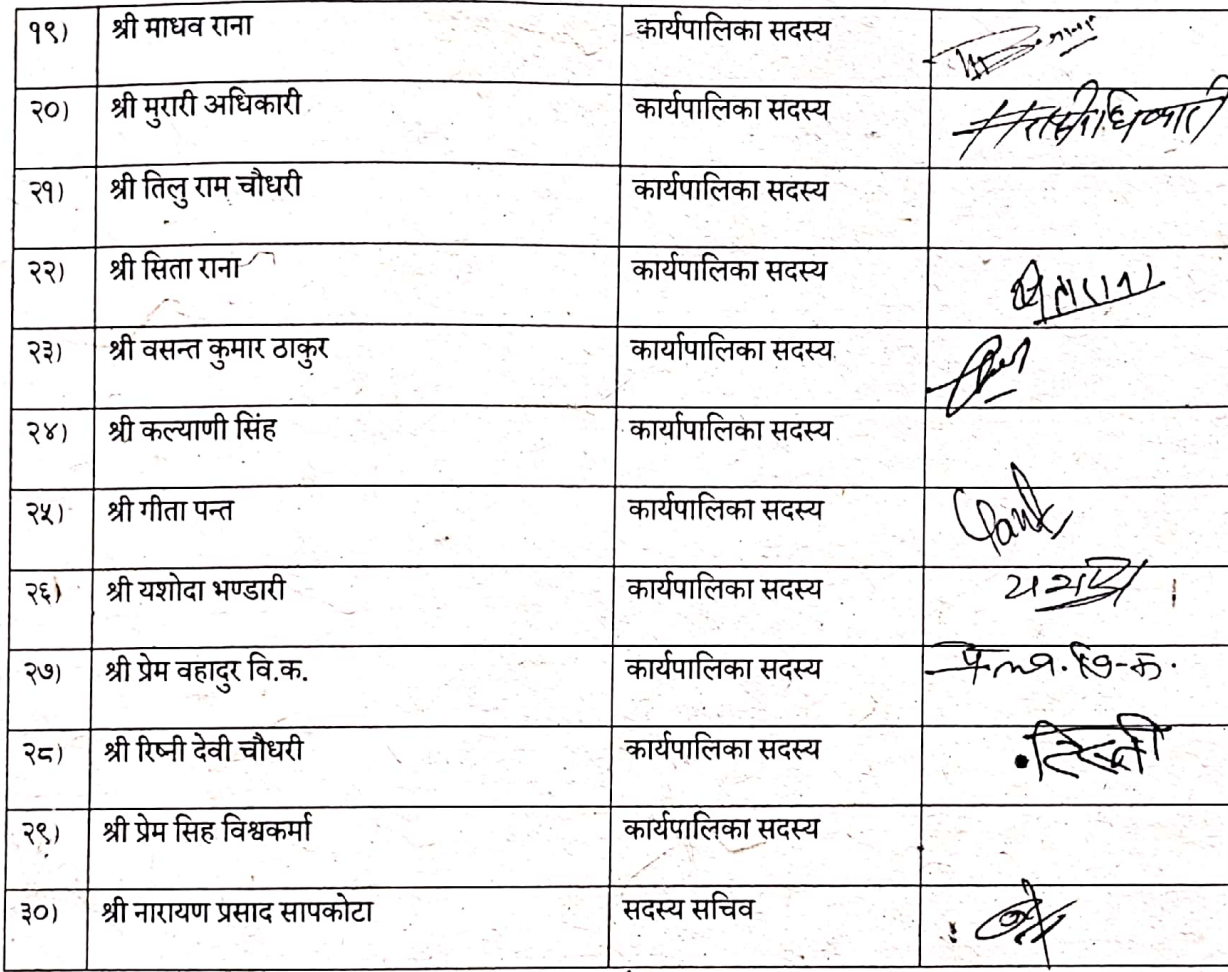 १९) श्री माधव राना कार्यपालिका सदस्य
२०) श्री मुरारी अधिकारी कार्यपालिका सदस्य
२१) श्री तिलु राम चौधरी कार्यपालिका सदस्य
२२) श्री सिता राना कार्यपालिका सदस्य
२३) श्री वसन्त कुमार ठाकुर कार्यापालिका सदस्य
२४) श्री कल्याणी सिंह कार्यापालिका सदस्य
२५) श्री गीता पन्त कार्यपालिका सदस्य
२६) श्री यशोदा भण्डारी कार्यपालिका सदस्य
२७) श्री प्रेम वहादुर वि.क. कार्यपालिका सदस्य
२८) श्री रिष्नी देवी चौधरी कार्यपालिका सदस्य
२९) श्री प्रेम सिह विश्वकर्मा कार्यपालिका सदस्य
३०) श्री नारायण प्रसाद सापकोटा सदस्य सचिव